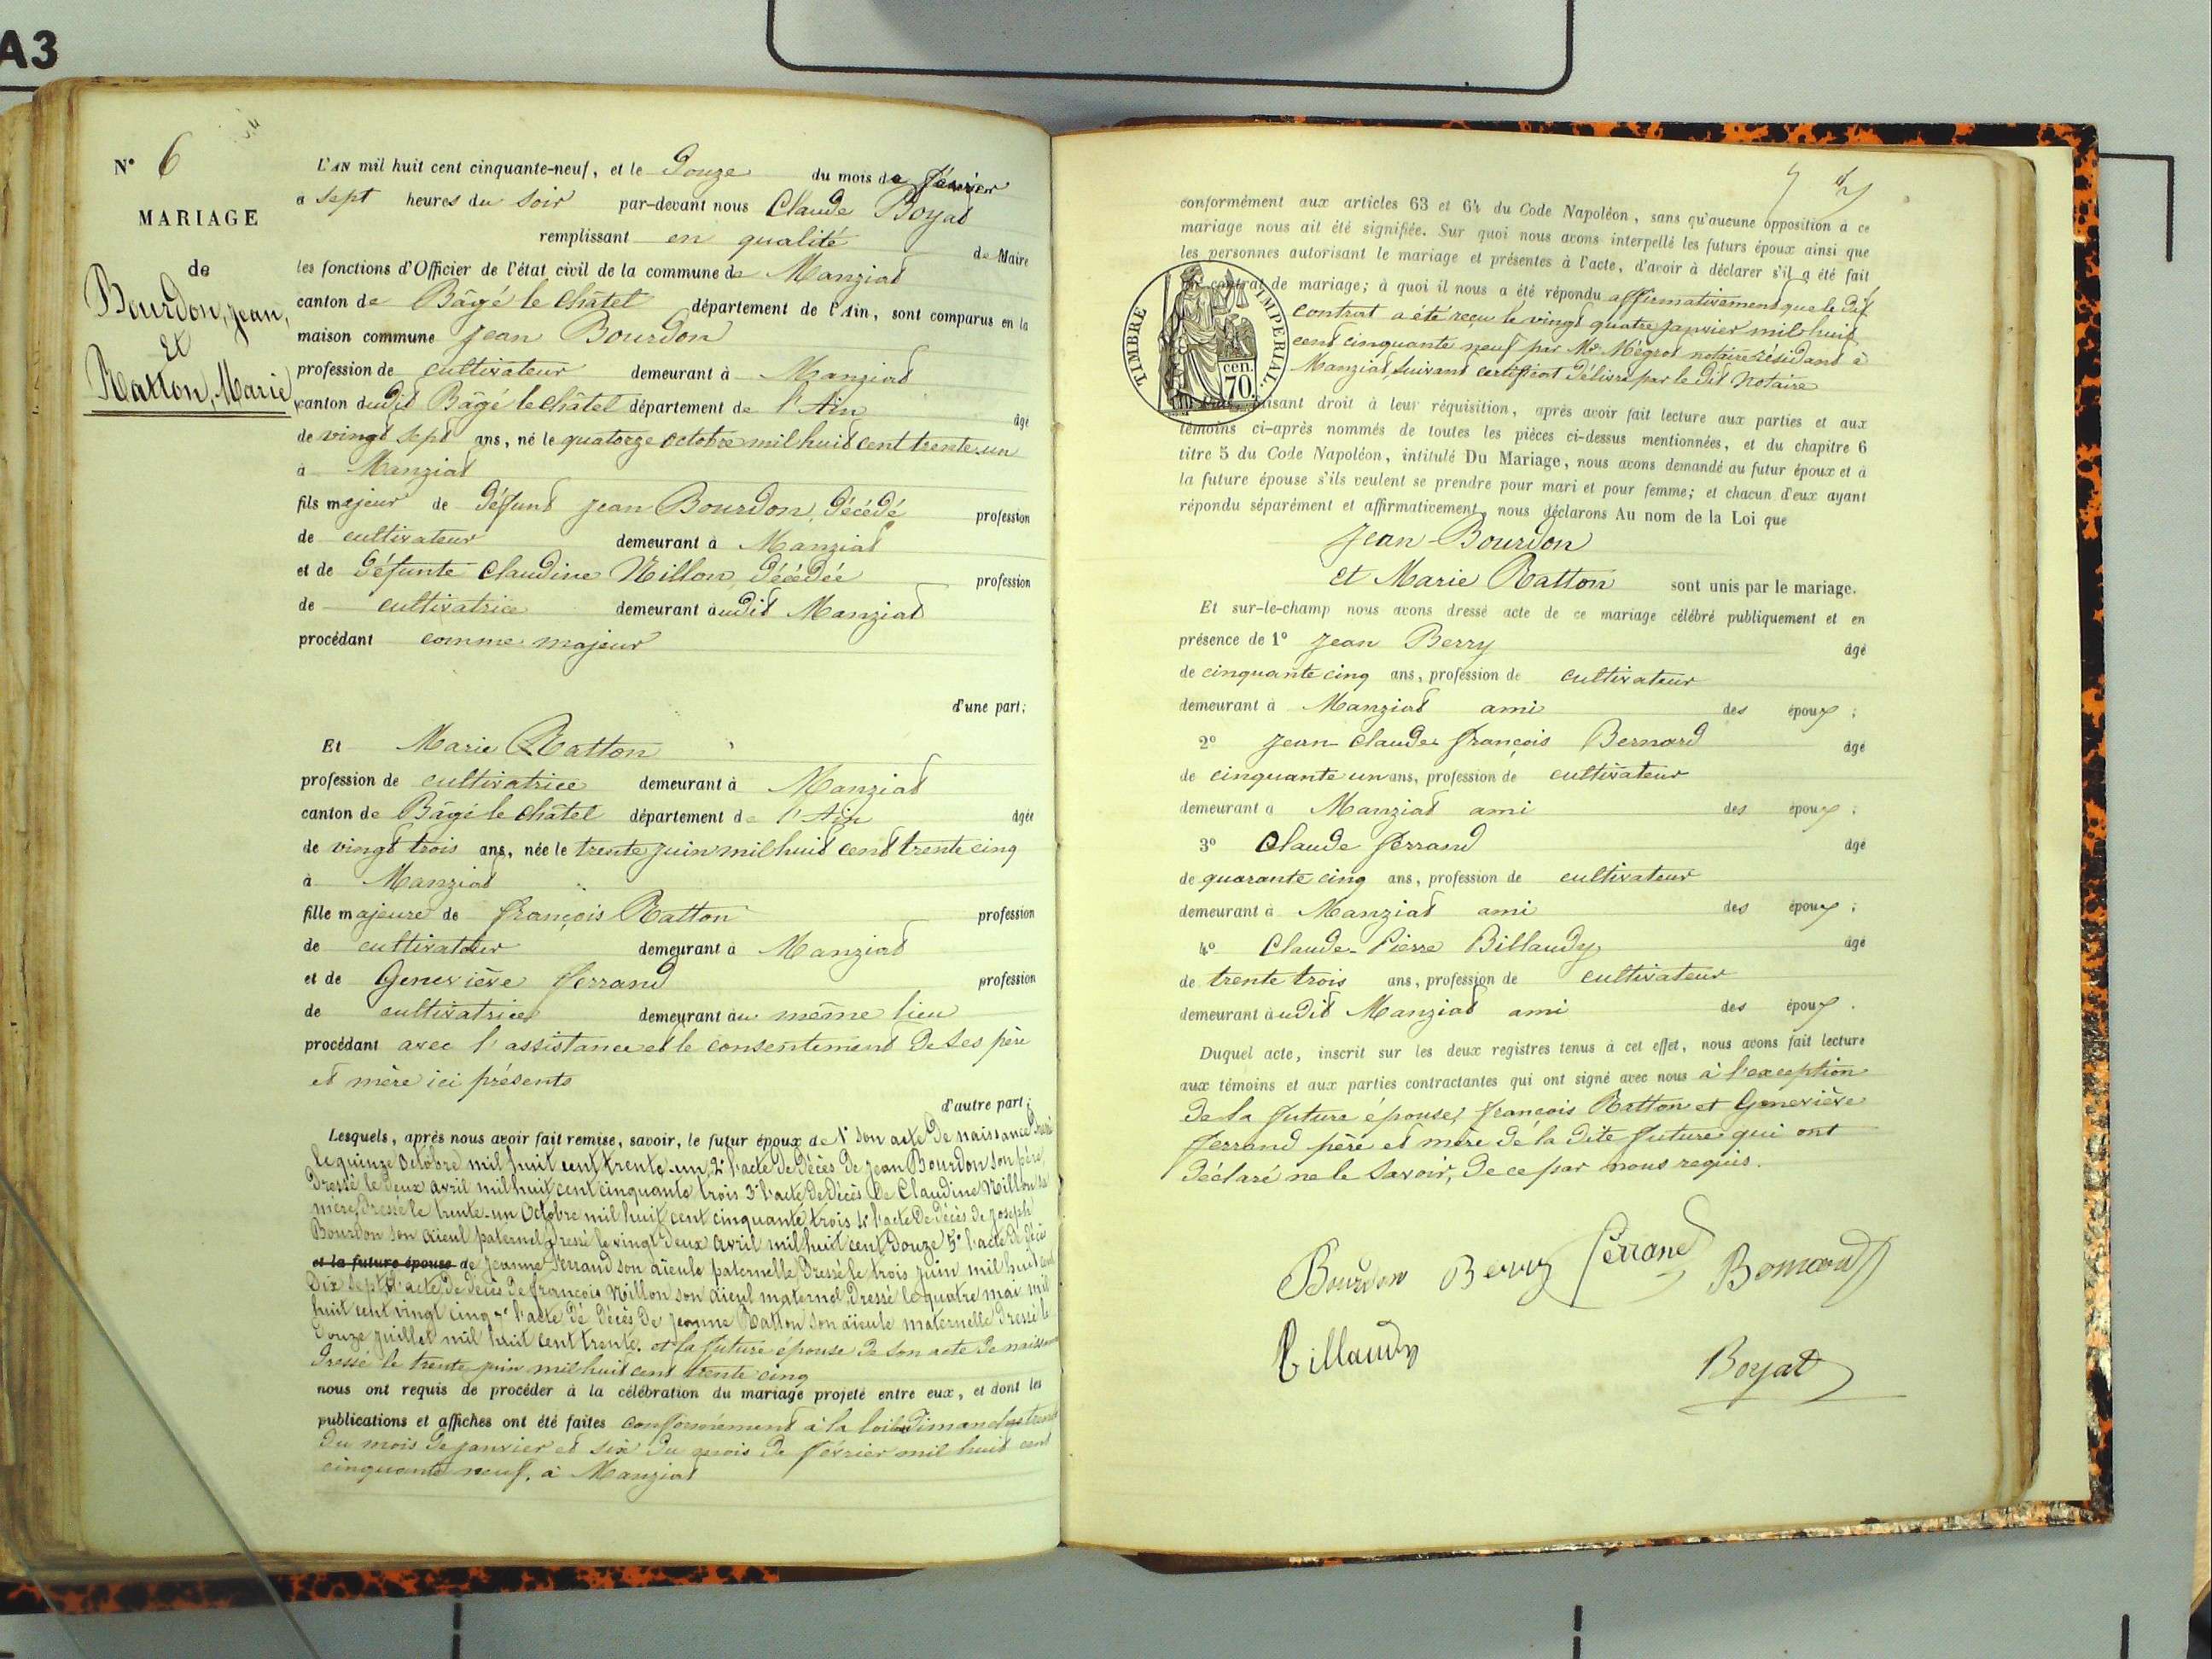 A3
N° 6
MARIAGE
de
Bourdon, Jean,
Et
Ratton, Marie
L'AN mil huit cent cinquante-neuf, et le Douze du mois de février
a sept heures du soir par-devant nous Claude Boyat
remplissant en qualité de Maire
les fonctions d'Officier de l'état civil de la commune de Manziat
canton de Bâgé le Châtel département de l'Ain, sont comparus en la
maison commune Jean Bourdon
profession de cultivateur demeurant à Manziat
canton dudit Bâgé le Châtel département de l'Ain âgé
de vingt sept ans, né le quatorze octobre mil huit cent trente-un
à Manziat
fils majeur de défunt Jean Bourdon, décédé profession
de cultivateur demeurant à Manziat
et de défunte Claudine Nillon décédée profession
de cultivatrice demeurant audit Manziat
procédant comme majeur
d'une part;
Et Marie Ratton
profession de cultivatrice demeurant à Manziat
canton de Bâgé le Châtel département de l'Ain âgée
de vingt trois ans, née le trente juin mil huit cent trente cinq
à Manziat
fille majeure de françois Ratton profession
de cultivateur demeurant à Manziat
et de Geneviève ferrand profession
de cultivatrice demeurant au même lieu
procédant avec l'assistance et le consentement de ses père
et mère ici présents
d'autre part;
Lesquels, après nous avoir fait remise, savoir, le futur époux de 1° son acte de naissance dressé
le quinze Octobre mil huit cent trente-un, 2° l'acte de décès de Jean Bourdon son père,
dressé le deux avril mil huit cent cinquante trois 3° l'acte de décès de Claudine Nillon sa
mère, dressé le trente-un Octobre mil huit cent cinquante trois 4° l'acte de décès de Joseph
Bourdon son aïeul paternel dressé le vingt deux avril mil huit cent douze 5° l'acte de décès
et la future épouse de Jeanne Ferrand son aïeule paternelle, dressé le trois juin mil huit cent
dix sept 6° l'acte de décès de françois Nillon son aïeul maternel, dressé le quatre mai mil
huit cent vingt cinq 7° l'acte de décès de Jeanne Ratton son aïeule maternelle dressé le
douze juillet mil huit cent trente. et la future épouse de son acte de naissance
dressé le trente juin mil huit cent trente cinq
nous ont requis de procéder à la célébration du mariage projeté entre eux, et dont les
publications et affiches ont été faites conformément à la loi les dimanches trente
du mois de janvier et six du mois de février mil huit cent
cinquante neuf, à Manziat
conformément aux articles 63 et 64 du Code Napoléon, sans qu'aucune opposition à ce
mariage nous ait été signifiée. Sur quoi nous avons interpellé les futurs époux ainsi que
les personnes autorisant le mariage et présentes à l'acte, d'avoir à déclarer s'il a été fait
contrat de mariage; à quoi il nous a été répondu affirmativement que le dit
contrat a été reçu le vingt quatre janvier mil huit
cent cinquante neuf par Me Mégrot notaire résidant à
Manziat, suivant certificat délivré par le dit notaire
TIMBRE IMPERIAL.
cen.
70.
faisant droit à leur réquisition, après avoir fait lecture aux parties et aux
témoins ci-après nommés de toutes les pièces ci-dessus mentionnées, et du chapitre 6
titre 5 du Code Napoléon, intitulé Du Mariage, nous avons demandé au futur époux et à
la future épouse s'ils veulent se prendre pour mari et pour femme; et chacun d'eux ayant
répondu séparément et affirmativement, nous déclarons Au nom de la Loi que
Jean Bourdon
et Marie Ratton sont unis par le mariage.
Et sur-le-champ nous avons dressé acte de ce mariage célébré publiquement et en
présence de 1° Jean Berry âgé
de cinquante cinq ans, profession de cultivateur
demeurant à Manziat ami des époux;
2° Jean-Claude françois Bernard âgé
de cinquante un ans, profession de cultivateur
demeurant à Manziat ami des époux;
3° Claude ferrand âgé
de quarante cinq ans, profession de cultivateur
demeurant à Manziat ami des époux;
4° Claude-Pierre Billaudy âgé
de trente trois ans, profession de cultivateur
demeurant audit Manziat ami des époux.
Duquel acte, inscrit sur les deux registres tenus à cet effet, nous avons fait lecture
aux témoins et aux parties contractantes qui ont signé avec nous à l'exception
de la future épouse, françois Ratton et Geneviève
ferrand père et mère de la dite future qui ont
déclaré ne le savoir, de ce par nous requis.
Bourdon Berry ferrand Bernard
Billaudy
Boyat